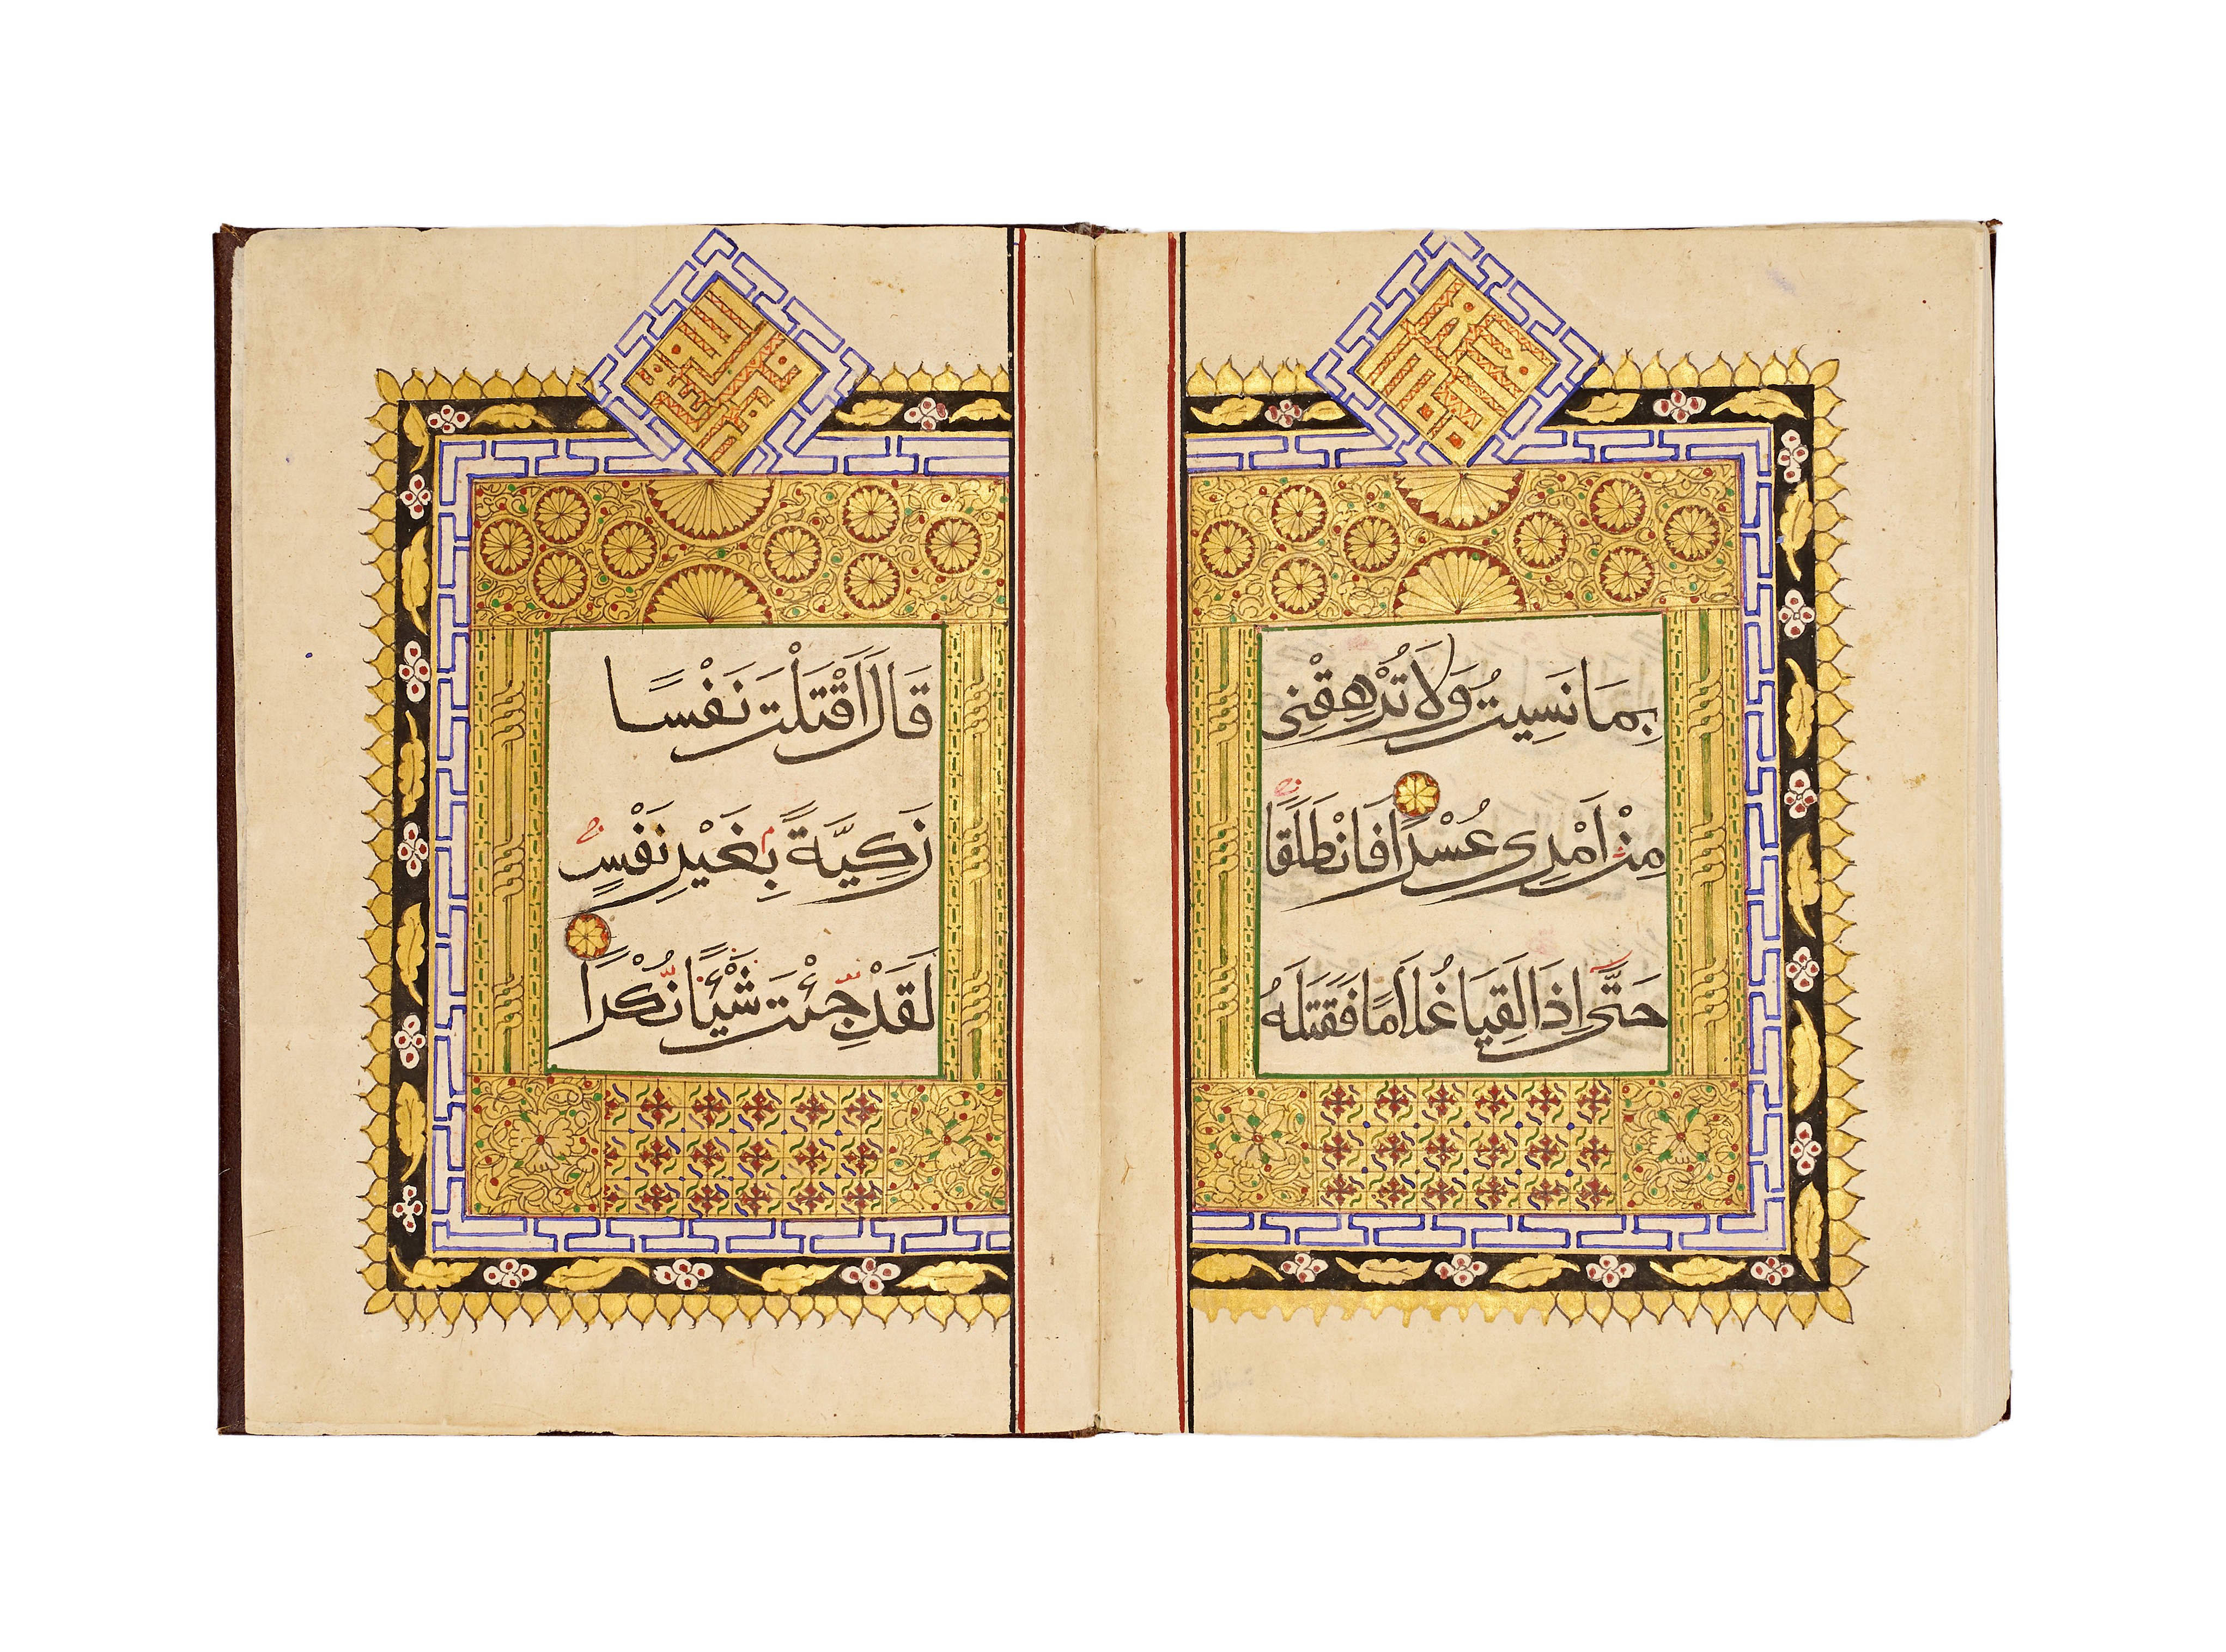 بِمَا نَسِيتُ وَلَا تُرْهِقْنِى
مِنْ اَمْرِى عُسْرًا فَانْطَلَقَا
حَتَّى اِذَا لَقِيَا غُلَامًا فَقَتَلَهُ
قَالَ اَقَتَلْتَ نَفْسًا
زَكِيَّةً بِغَيْرِ نَفْسٍ
لَقَدْ جِئْتَ شَيْئًا نُكْرًا